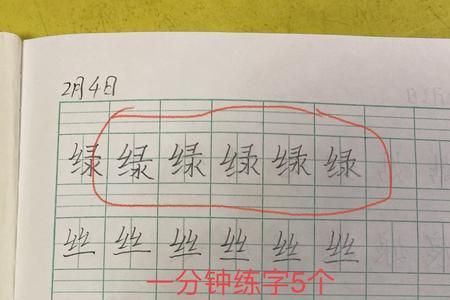 2月4日
绿绿绿绿绿绿
丝丝丝丝丝丝
一分钟练字5个